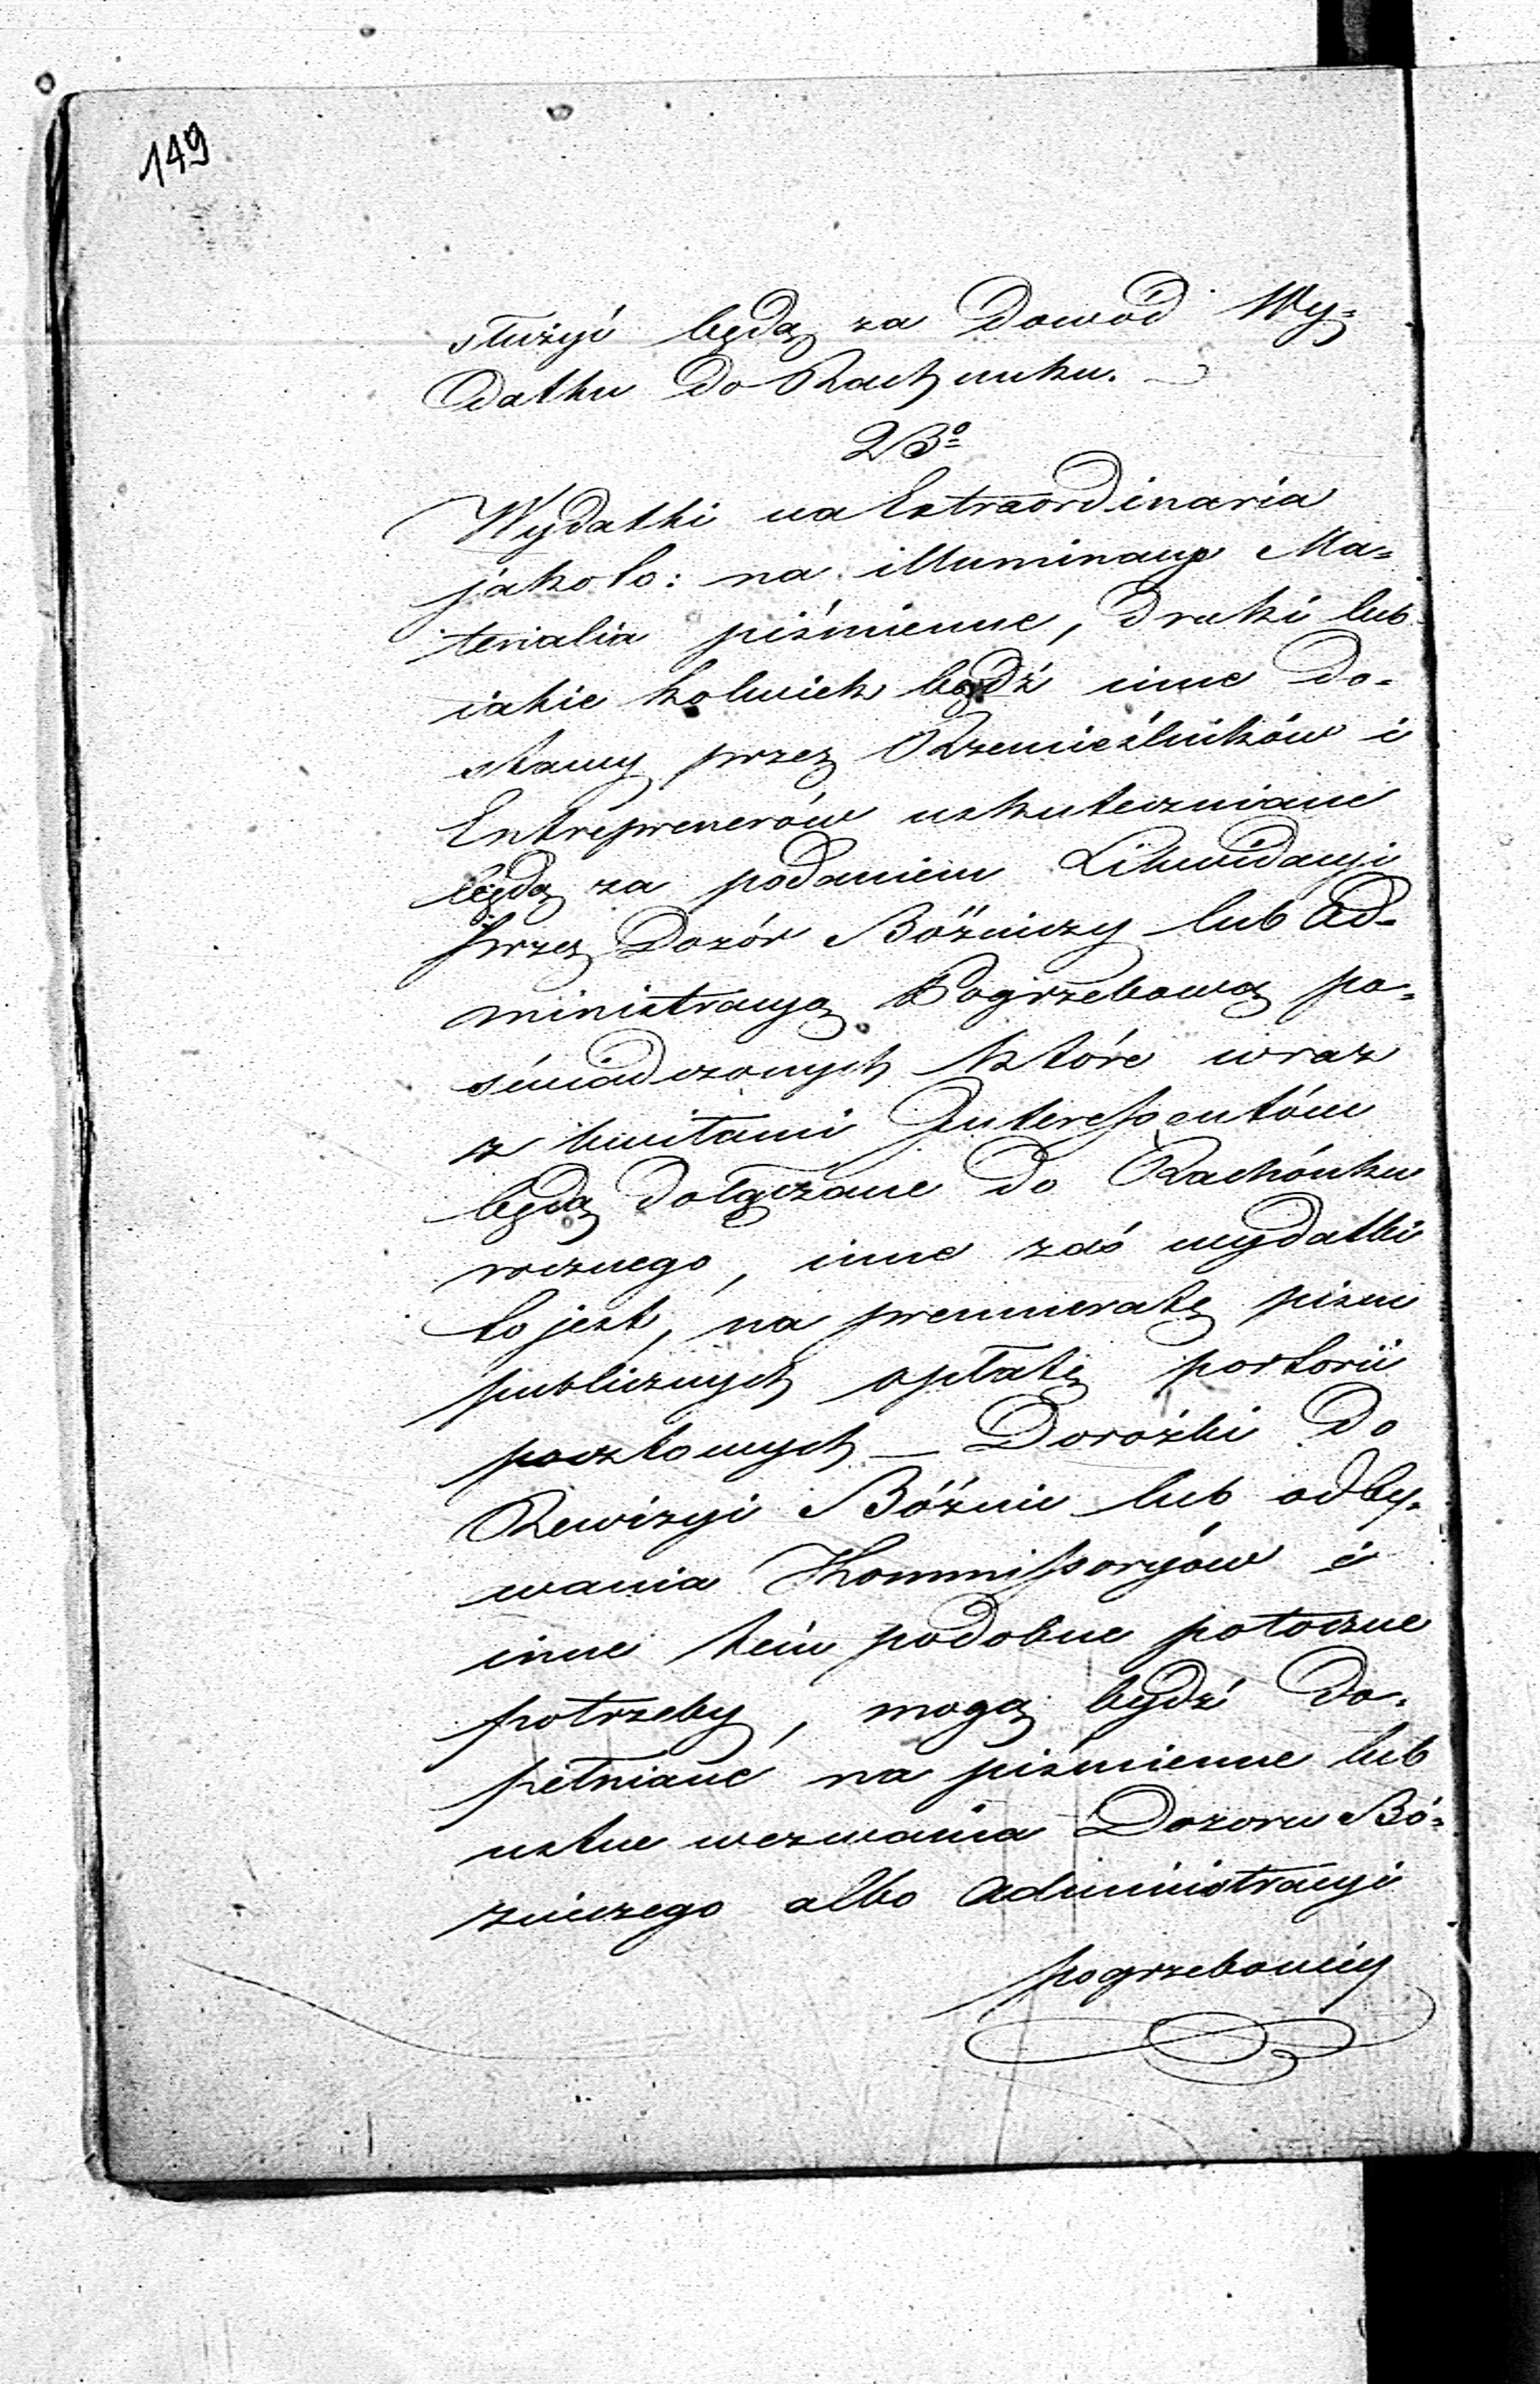 149
służyć będą za Dowód Wy=
datku do Rachunku.
23º
Wydatki na Extraordinaria
jakoto: na illuminacye Ma=
terialia piśmienne, druki lub
iakie kolwiek bądź inne do=
stawy przez Rzemieślników i
Entreprenerów uskuteczniane
będą za podaniem Likwidacyi
przez Dozór Bóźniczy lub Ad=
ministracyą Pogrzebową po=
świadczonych które wraz
z kwitami Interessentów
będą dołączane do Rachónku
rocznego, inne zaś wydatki
to jest, na prenumeratę pism
publicznych opłatę portorii
pocztowych — Dorożki do
Rewizyi Bóźnic lub odby=
wania Kommissoryów i
inne tém podobne potoczne
potrzeby, mogą bydź do=
pełniane na piśmienne lub
ustne wezwania Dozoru Bó=
zniczego albo Administracyi
pogrzebowéy